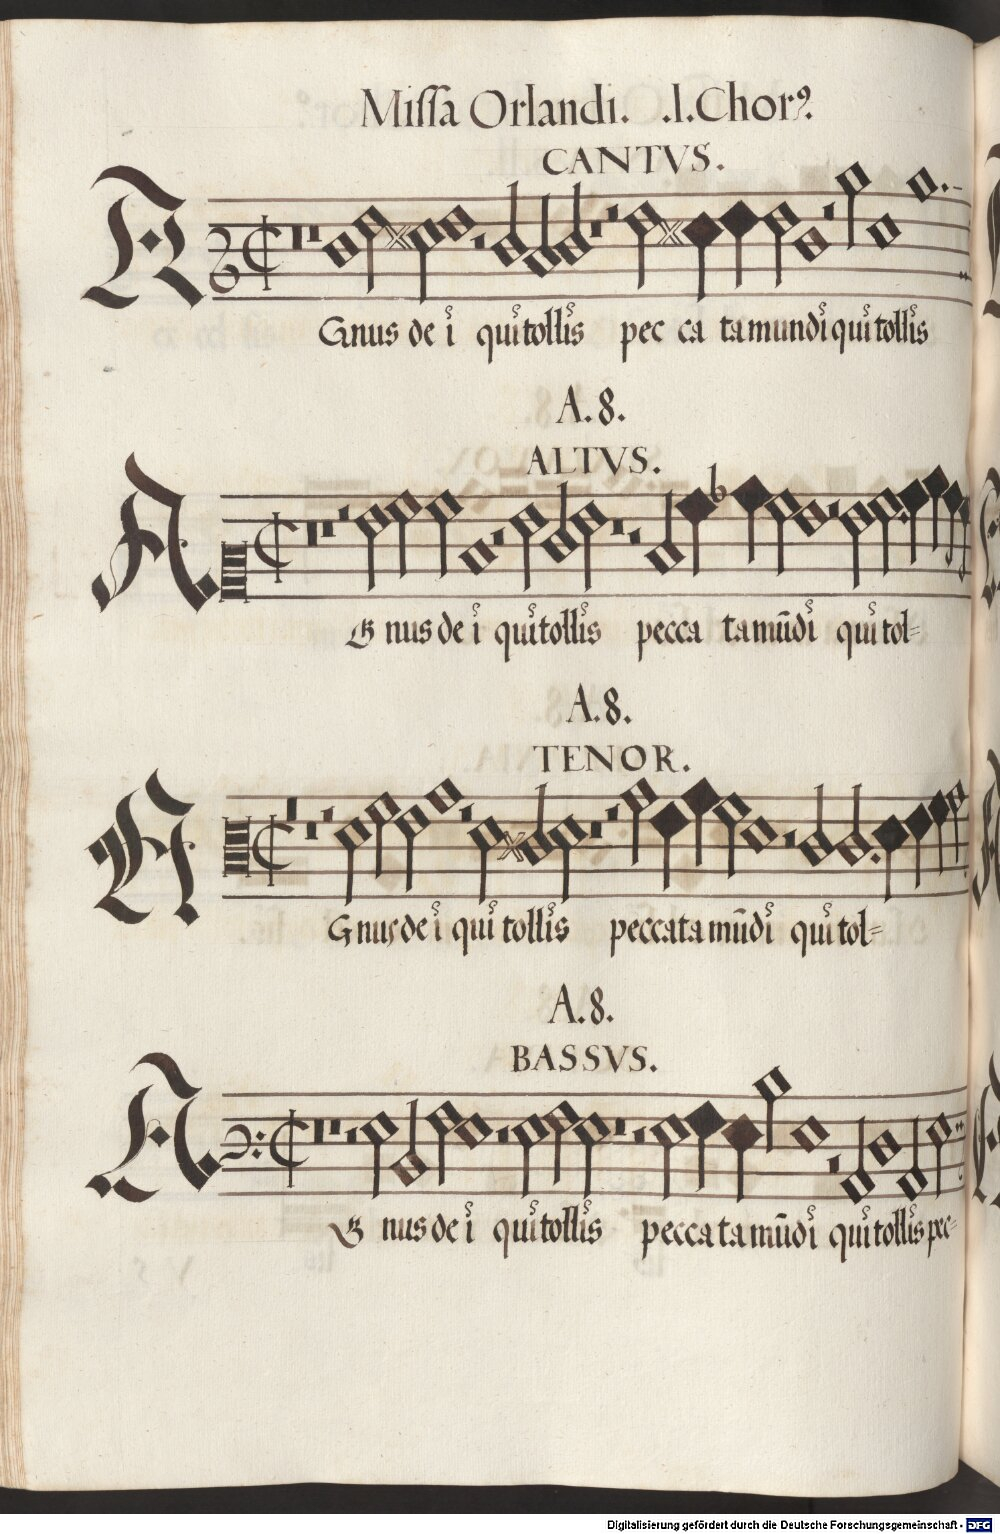 Missa Orlandi. .I. Chorꝰ.
CANTVS.
AGnus de i qui tollis pec ca ta mundi qui tollis
A. 8.
ALTVS.
AG nus de i qui tollis pecca ta mūdi qui tol=
A. 8.
TENOR.
AGnus de i qui tollis peccata mūdi qui tol=
A. 8.
BASSVS.
AG nus de i qui tollis peccata mūdi qui tollis pec=
Digitalisierung gefördert durch die Deutsche Forschungsgemeinschaft - DFG